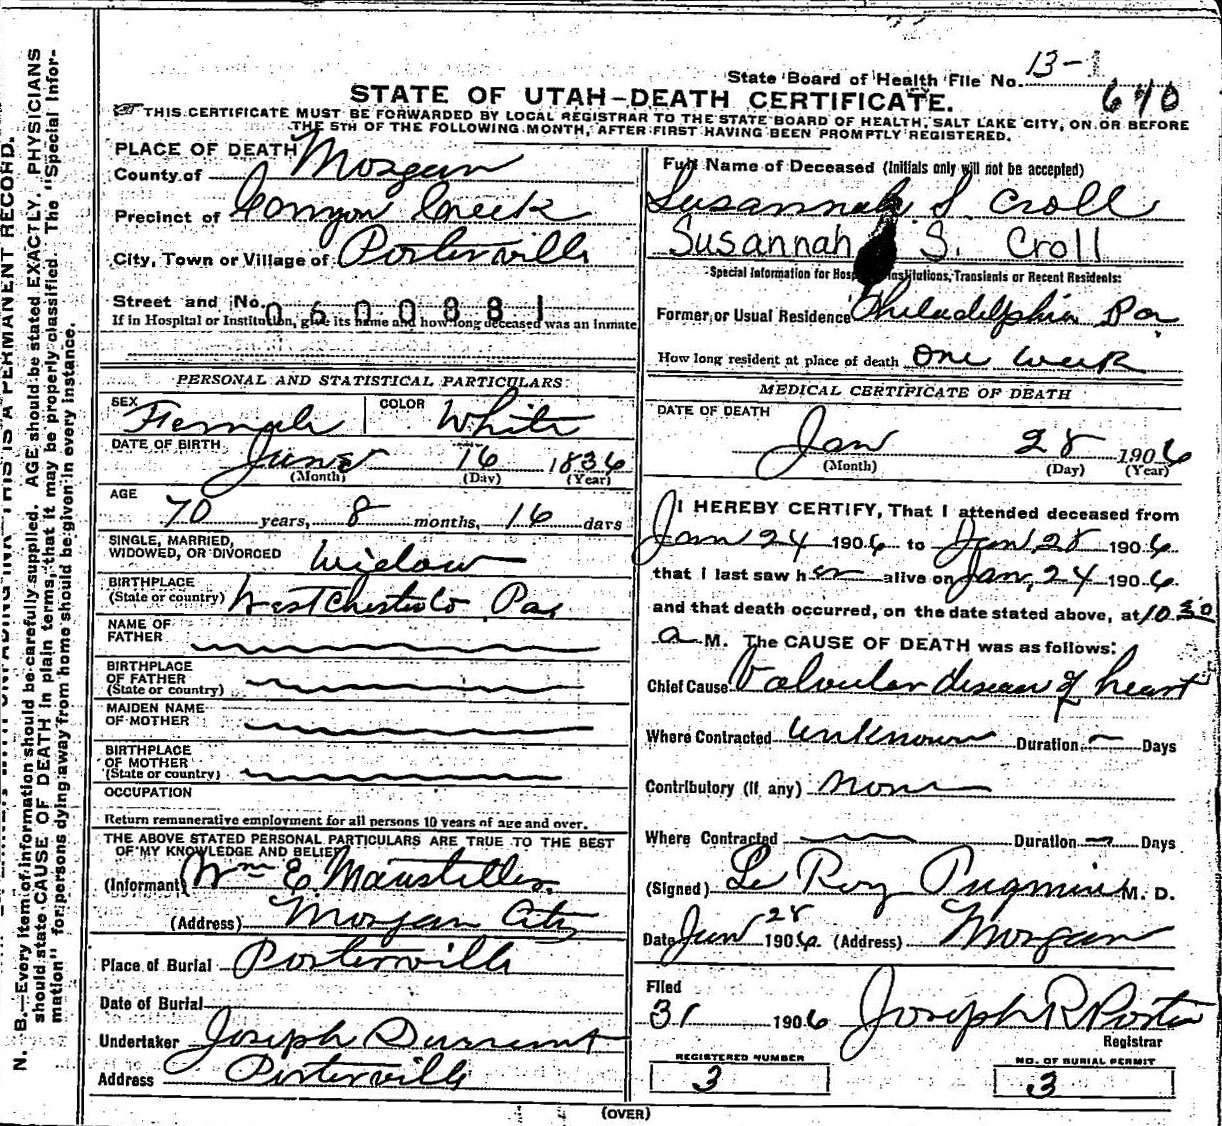 State Board of Health File No. 13-1
640
STATE OF UTAH-DEATH CERTIFICATE.
THIS CERTIFICATE MUST BE FORWARDED BY LOCAL REGISTRAR TO THE STATE BOARD OF HEALTH, SALT LAKE CITY, ON OR BEFORE
THE 5TH OF THE FOLLOWING MONTH, AFTER FIRST HAVING BEEN PROMPTLY REGISTERED.
PLACE OF DEATH
County of Morgan
Precinct of Canyon Creek
City, Town or Village of Porterville
Street and No. 0600881
If in Hospital or Institution, give its name and how long deceased was an inmate
PERSONAL AND STATISTICAL PARTICULARS:
SEX Female COLOR White
DATE OF BIRTH June 16 1836
(Month) (Day) (Year)
AGE
70 years, 8 months, 16 days
SINGLE, MARRIED,
WIDOWED, OR DIVORCED Widow
BIRTHPLACE
(State or country) West Chester Co Pa
NAME OF
FATHER
BIRTHPLACE
OF FATHER
(State or country)
MAIDEN NAME
OF MOTHER
BIRTHPLACE
OF MOTHER
(State or country)
OCCUPATION
Return remunerative employment for all persons 10 years of age and over.
THE ABOVE STATED PERSONAL PARTICULARS ARE TRUE TO THE BEST
OF MY KNOWLEDGE AND BELIEF
(Informant) Wm E. Mansteller
(Address) Morgan City
Place of Burial Porterville
Date of Burial
Undertaker Joseph Durrant
Address Porterville
Full Name of Deceased (Initials only will not be accepted)
Susannah S. Croll
Susannah S. Croll
Special Information for Hospitals, Institutions, Transients or Recent Residents:
Former or Usual Residence Philadelphia Pa
How long resident at place of death One week
MEDICAL CERTIFICATE OF DEATH
DATE OF DEATH
Jan 28 1906
(Month) (Day) (Year)
I HEREBY CERTIFY, That I attended deceased from
Jan 24 1906 to Jan 28 1906
that I last saw her alive on Jan, 24 1906
and that death occurred, on the date stated above, at 10 30
a M. The CAUSE OF DEATH was as follows:
Chief Cause Valvular disease of heart
Where Contracted unknown Duration Days
Contributory (if any) None
Where Contracted Duration Days
(Signed) Le Roy Pugmire M. D.
Date Jan 28 1906. (Address) Morgan
Filed
31 1906 Joseph R Porter
Registrar
REGISTERED NUMBER
3
NO. OF BURIAL PERMIT
3
(OVER)
N. B.—Every item of information should be carefully supplied. AGE should be stated EXACTLY. PHYSICIANS
should state CAUSE OF DEATH in plain terms, that it may be properly classified. The "Special Infor-
mation" for persons dying away from home should be given in every instance.